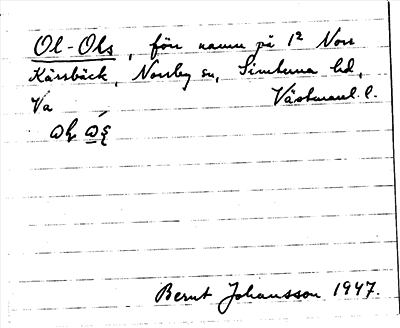 Ol-Ols, förr namn på 1² Norr
Kärsbäck, Norrby sn, Simtuna hd,
Va Västmanl. l.
Bernt Johansson 1947.